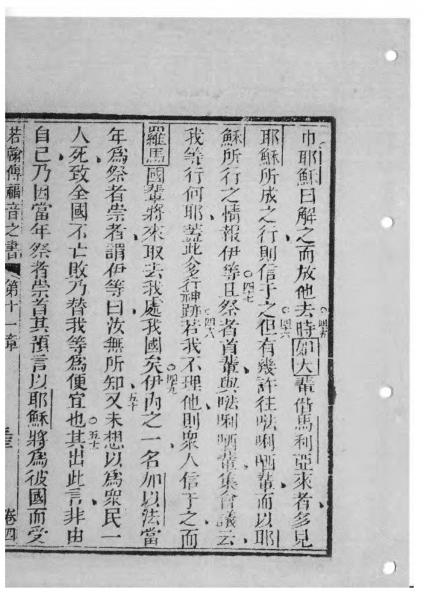 巾耶穌曰解之而放他去時如大輩偕馬利亞來者多見
四五
耶穌所成之行則信于之但有幾許往𠵽唎哂輩而以耶
四六
穌所行之情報伊等且祭者首輩與𠵽唎哂輩集會議云
四七
我等行何耶蓋此人多行神跡若我不理他則衆人信于之而
四八
羅馬國輩將來取去我處我國矣伊內之一名加以法當
四九
年爲祭者崇者謂伊等曰汝無所知又未想以爲衆民一
五十
人死致全國不亡敗乃替我等爲便宜也其出此言非由
五一
自己乃因當年祭者崇者其預言以耶穌將爲彼國而受
若翰傳福音之書 第十一章 卷四